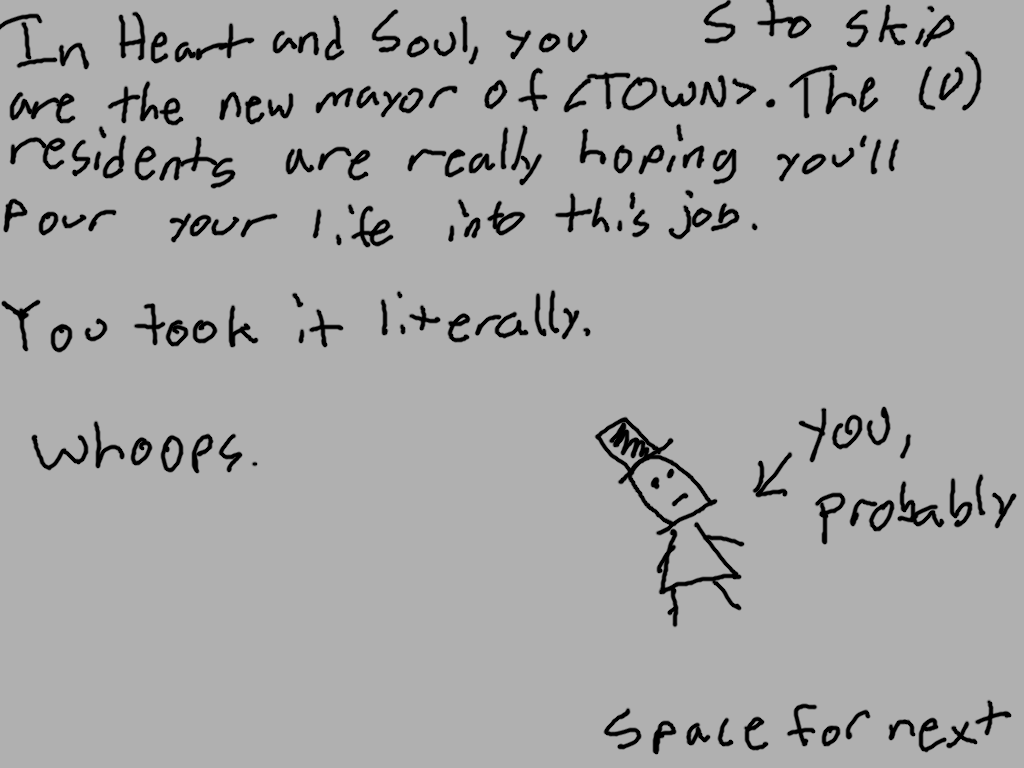 In Heart and Soul, you
S to skip
are the new mayor of <TOWN>. The (0)
residents are really hoping you'll
pour your life into this job.
You took it literally.
Whoops.
you,
probably
Space for next